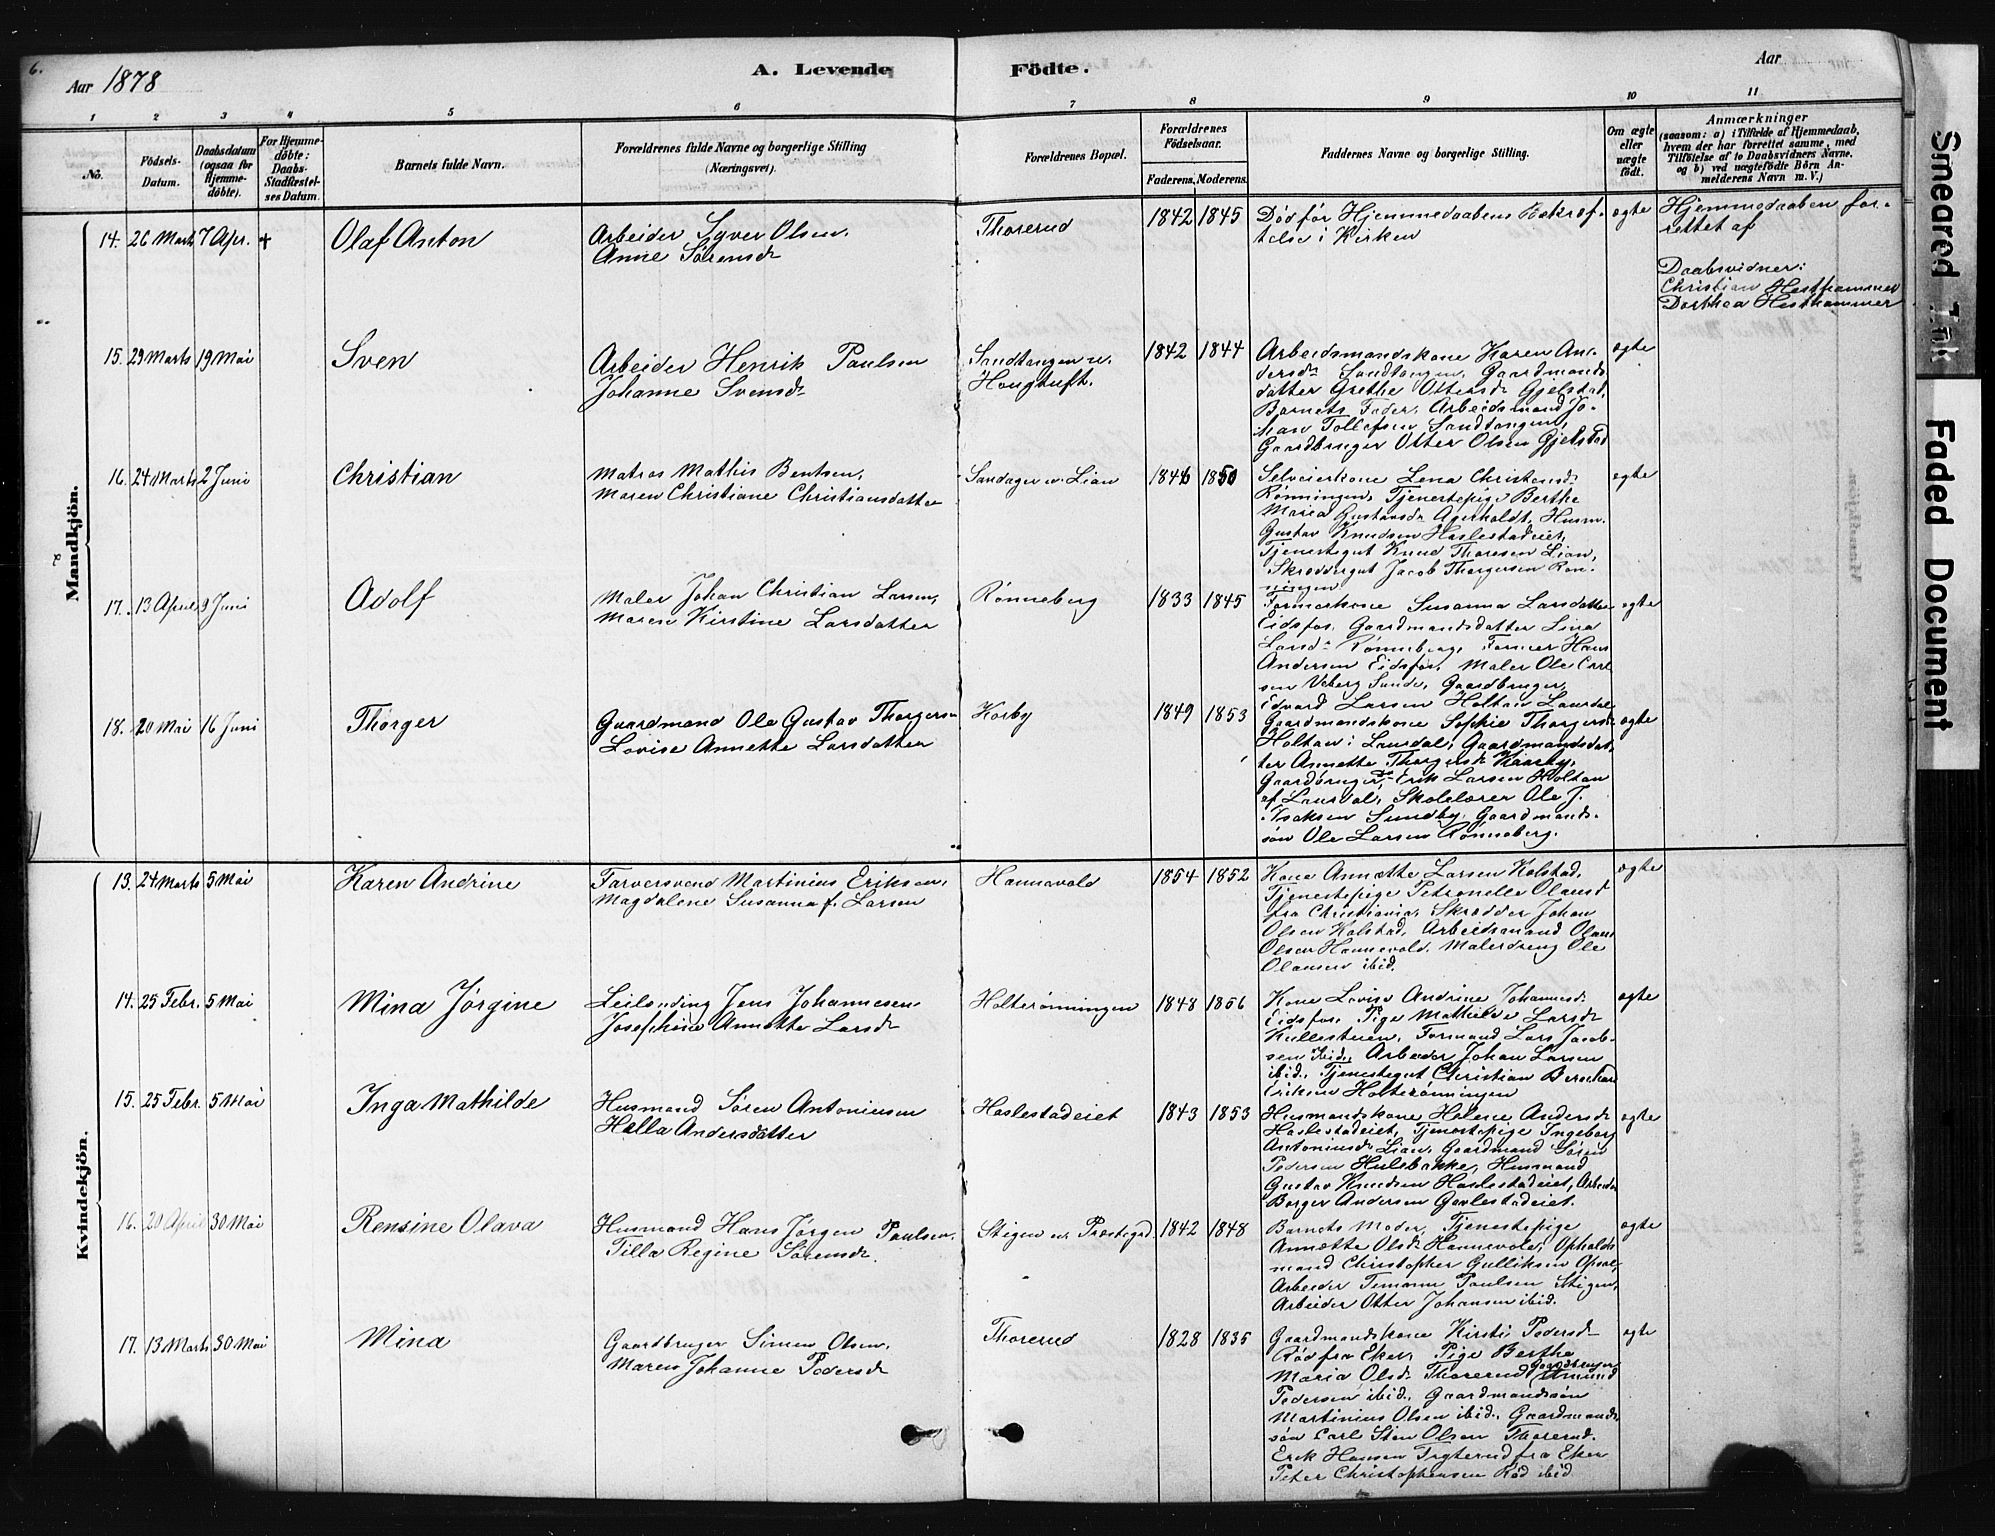 6.
Aar 1878
A. Levende Födte.
Aar
1 2 3 4 5 6 7 8 9 10 11
No.
Födsels-
Datum.
Daabsdatum
(ogsaa for
Hjemme-
döbte).
For Hjemme-
döbte:
Daabs-
Stadfæstel-
ses Datum.
Barnets fulde Navn.
Forældrenes fulde Navne og borgerlige Stilling
(Næringsvei).
Forældrenes Bopæl.
Forældrenes
Födselsaar.
Faderens. Moderens.
Faddernes Navne og borgerlige Stilling.
Om ægte
eller
uægte
födt.
Anmærkninger
(saasom: a) i Tilfælde af Hjemmedaab,
hvem der har forrettet samme, med
Tilföielse af to Daabsvidners Navne,
og b) ved uægtefödte Börn An-
melderens Navn m. V.)
Mandkjön.
14. 26 Marts 7 Apr. + Olaf Anton
Arbeider Syver Olsen,
Anne Sørensd
Thorerud 1842 1845
Død før Hjemmedaabens Bekræf-
telse i Kirken
ægte
Hjemmedaaben for-
rettet af
Daabsvidner:
Christian Hesthammer
Dorthea Hesthammer
15. 29 Marts 19 Mai Sven
Arbeider Henrik Paulsen
Johanne Svensd
Sandtangen u.
Hougtuft.
1842 1844
Arbeidsmandskone Karen An-
dersd Sandtangen, Gaardmands-
datter Grethe Ottersd Gjelstad,
Barnets Fader, Arbeidsmand Jo-
han Tollefsen Sandtangen,
Gaardbruger Otter Olsen Gjelstad
ægte
16. 24 Marts 2 Juni Christian
Matros Mathis Bentsen,
Maren Christiane Christiansdatter
Sandager u. Lian 1846 1850
Selveierkone Lena Christensd
Rønningen, Tjenestepige Berthe
Maria Gustavsd Agerholdt, Husm.
Gustav Knudsen Haslestadeiet,
Tjenestegut Knud Thoresen Lian,
Skreddergut Jacob Thorgersen Røn-
ningen
ægte
17. 13 April 9 Juni Adolf
Maler Johan Christian Larsen,
Maren Kirstine Larsdatter
Rønneberg 1833 1845
Formerkone Susanna Larsdatter
Eidsfos, Gaardmandsdatter Lina
Larsd Rønneberg, Former Hans
Andersen Eidsfos, Maler Ole Carl
sen Veberg Sande, Gaardbruger
Edvard Larsen Holtan Laurdal
ægte
18. 20 Mai 16 Juni Thorger
Gaardmand Ole Gustav Thorgersen
Lovise Annette Larsdatter
Korby 1849 1853
Gaardmandskone Sophie Thorgersd
Holtan i Laurdal, Gaardmandsdat-
ter Annette Thorgersd Kaarby,
Gaardbruger Erik Larsen Holtan
af Laurdal, Skolelærer Ole J.
Isaksen Sundby, Gaardmands-
søn Ole Larsen Rønneberg.
ægte
Kvindekjön.
13. 24 Marts 5 Mai Karen Andrine
Farversvend Martinius Eriksen,
Magdalene Susanna f. Larsen
Hannevold 1854 1852
Kone Annette Larsen Kolstad,
Tjenestepige Petronelle Olausd
fra Christiania, Skrædder Johan
Olsen Kolstad, Arbeidsmand Olaus
Olsen Hannevold, Malerdreng Ole
Olausen ibid.
ægte
14. 25 Febr. 5 Mai Mina Jørgine
Leilending Jens Johannesen
Josephine Annette Larsd
Holterønningen 1848 1856
Kone Lovise Andrine Johannesd
Eidsfos, Pige Mathilde Larsd
Kullesteien, Formand Lars Jacob-
sen Ibid, Arbeider Johan Larsen
ibid., Tjenestegut Christian Bernhard
Eriksen Holterønningen
ægte
15. 25 Febr. 5 Mai Inga Mathilde
Husmand Søren Antoniussen
Hella Andersdatter
Haslestadeiet 1843 1853
Husmandskone Helene Andersd
Haslestadeiet, Tjenestepige Ingeborg
Antoniusd Lian, Gaardmand Søren
Pedersen Hulebakke, Husmand
Gustav Knudsen Haslestadeiet, Arbeider
Borger Andersen Gavlestadeiet.
ægte
16. 20 April 30 Mai Rensine Olava
Husmand Hans Jørgen Paulsen,
Tilla Regine Sørensd
Stigen u. Prestegrd. 1842 1848
Barnets Moder, Tjenestepige
Annette Olsd Hannevold, Opholds
mand Christopher Gulliksen Opsal,
Arbeider Temann Paulsen Stigen,
Arbeider Otter Johansen ibid.
ægte
17. 13 Marts 30 Mai Mina
Gaardbruger Simen Olsen,
Maren Johanne Pedersd
Thorerud 1828 1835
Gaardmandskone Kirsti Pedersd
Rød fra Eker, Pige Berthe
Maria Olsd Thorerud, Gaardbruger Amund
Pedersen ibid., Gaardmandssøn
Martinius Olsen ibid., Gaardmands
søn Carl Sten Olsen Thorerud,
Erik Hansen Trgterud fra Eker
Peter Christophersen Rød ibid
ægte
Smeared Ink
Faded Document